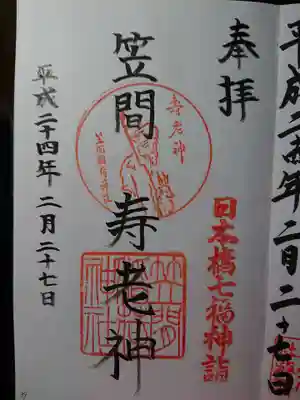 平成二十四年二月二十七日
奉拝
日本橋七福神詣
笠間寿老神
寿老神
平成二十四年二月二十七日